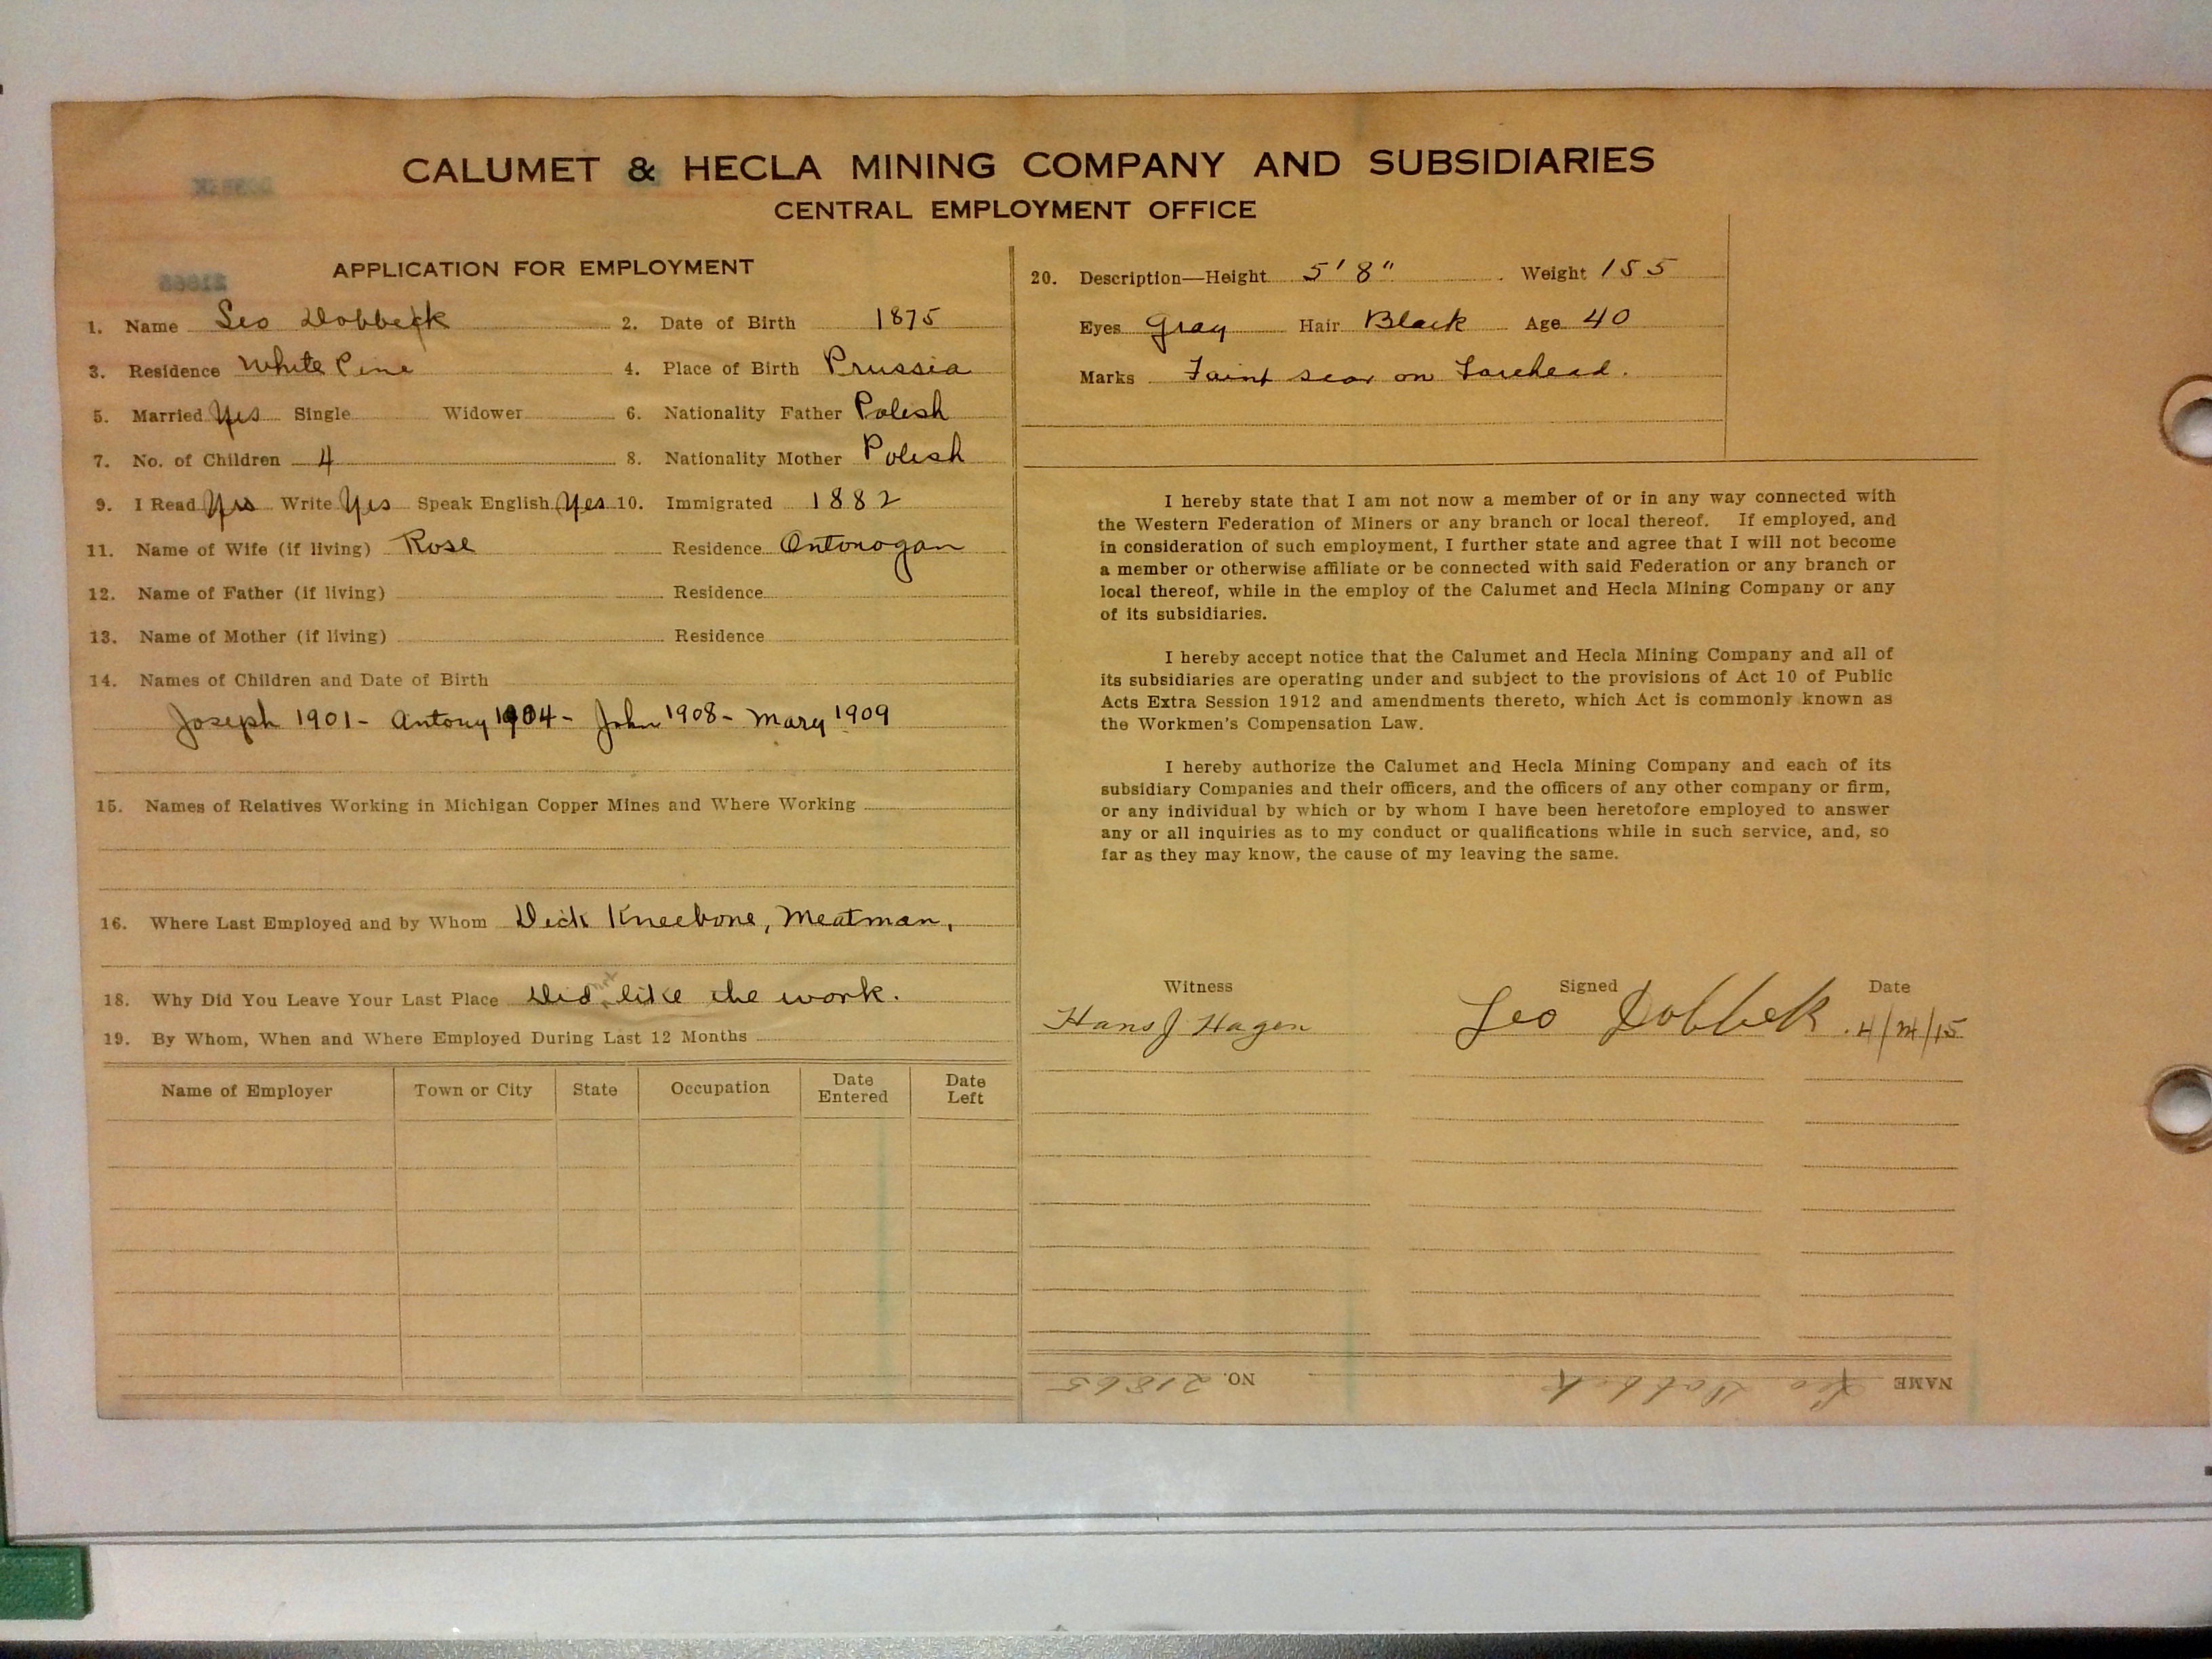 CALUMET & HECLA MINING COMPANY AND SUBSIDIARIES
CENTRAL EMPLOYMENT OFFICE
APPLICATION FOR EMPLOYMENT
1. Name Leo Dobbeck 2. Date of Birth 1875
3. Residence White Pine 4. Place of Birth Prussia
5. Married Yes Single Widower 6. Nationality Father Polish
7. No. of Children 4 8. Nationality Mother Polish
9. I Read Yes Write Yes Speak English Yes 10. Immigrated 1882
11. Name of Wife (if living) Rose Residence Ontonogan
12. Name of Father (if living) Residence
13. Name of Mother (if living) Residence
14. Names of Children and Date of Birth
Joseph 1901 - Antony 1904 - John 1908 - Mary 1909
15. Names of Relatives Working in Michigan Copper Mines and Where Working
16. Where Last Employed and by Whom Dick Kneebone, Meatman,
18. Why Did You Leave Your Last Place Did not like the work.
19. By Whom, When and Where Employed During Last 12 Months
Name of Employer Town or City State Occupation Date Entered Date Left
20. Description—Height 5' 8" Weight 155
Eyes Gray Hair Black Age 40
Marks Faint scar on Forehead.
I hereby state that I am not now a member of or in any way connected with
the Western Federation of Miners or any branch or local thereof. If employed, and
in consideration of such employment, I further state and agree that I will not become
a member or otherwise affiliate or be connected with said Federation or any branch or
local thereof, while in the employ of the Calumet and Hecla Mining Company or any
of its subsidiaries.
I hereby accept notice that the Calumet and Hecla Mining Company and all of
its subsidiaries are operating under and subject to the provisions of Act 10 of Public
Acts Extra Session 1912 and amendments thereto, which Act is commonly known as
the Workmen's Compensation Law.
I hereby authorize the Calumet and Hecla Mining Company and each of its
subsidiary Companies and their officers, and the officers of any other company or firm,
or any individual by which or by whom I have been heretofore employed to answer
any or all inquiries as to my conduct or qualifications while in such service, and, so
far as they may know, the cause of my leaving the same.
Witness Signed Date
Hans J Hagen Leo Dobbek 4/14/15
NAME Leo Dobbek NO. 21865